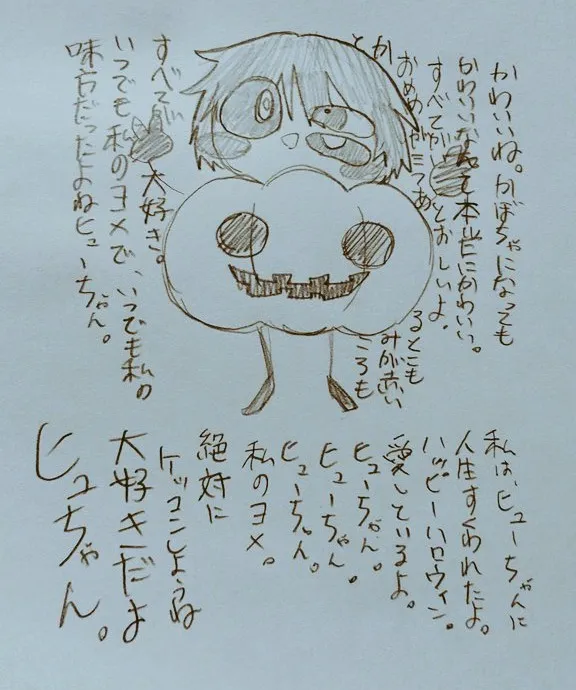 かわいいね。かぼちゃになっても
かわいいなんて本当にかわいい。
すべてがいとおしいよ。
おめめが三つあ
るとこも
みが赤い
ころも
とか
すべてが大好き。
いつでも私のヨメで、いつでも私の
味方だったよねヒューちゃん。
私は、ヒューちゃんに
人生すくわれたよ。
ハッピーハロウィン。
愛しているよ。
ヒューちゃん。
ヒューちゃん。
ヒューちゃん。
私のヨメ。
絶対に
ケッコンしようね
大好きだよ
ヒュちゃん。